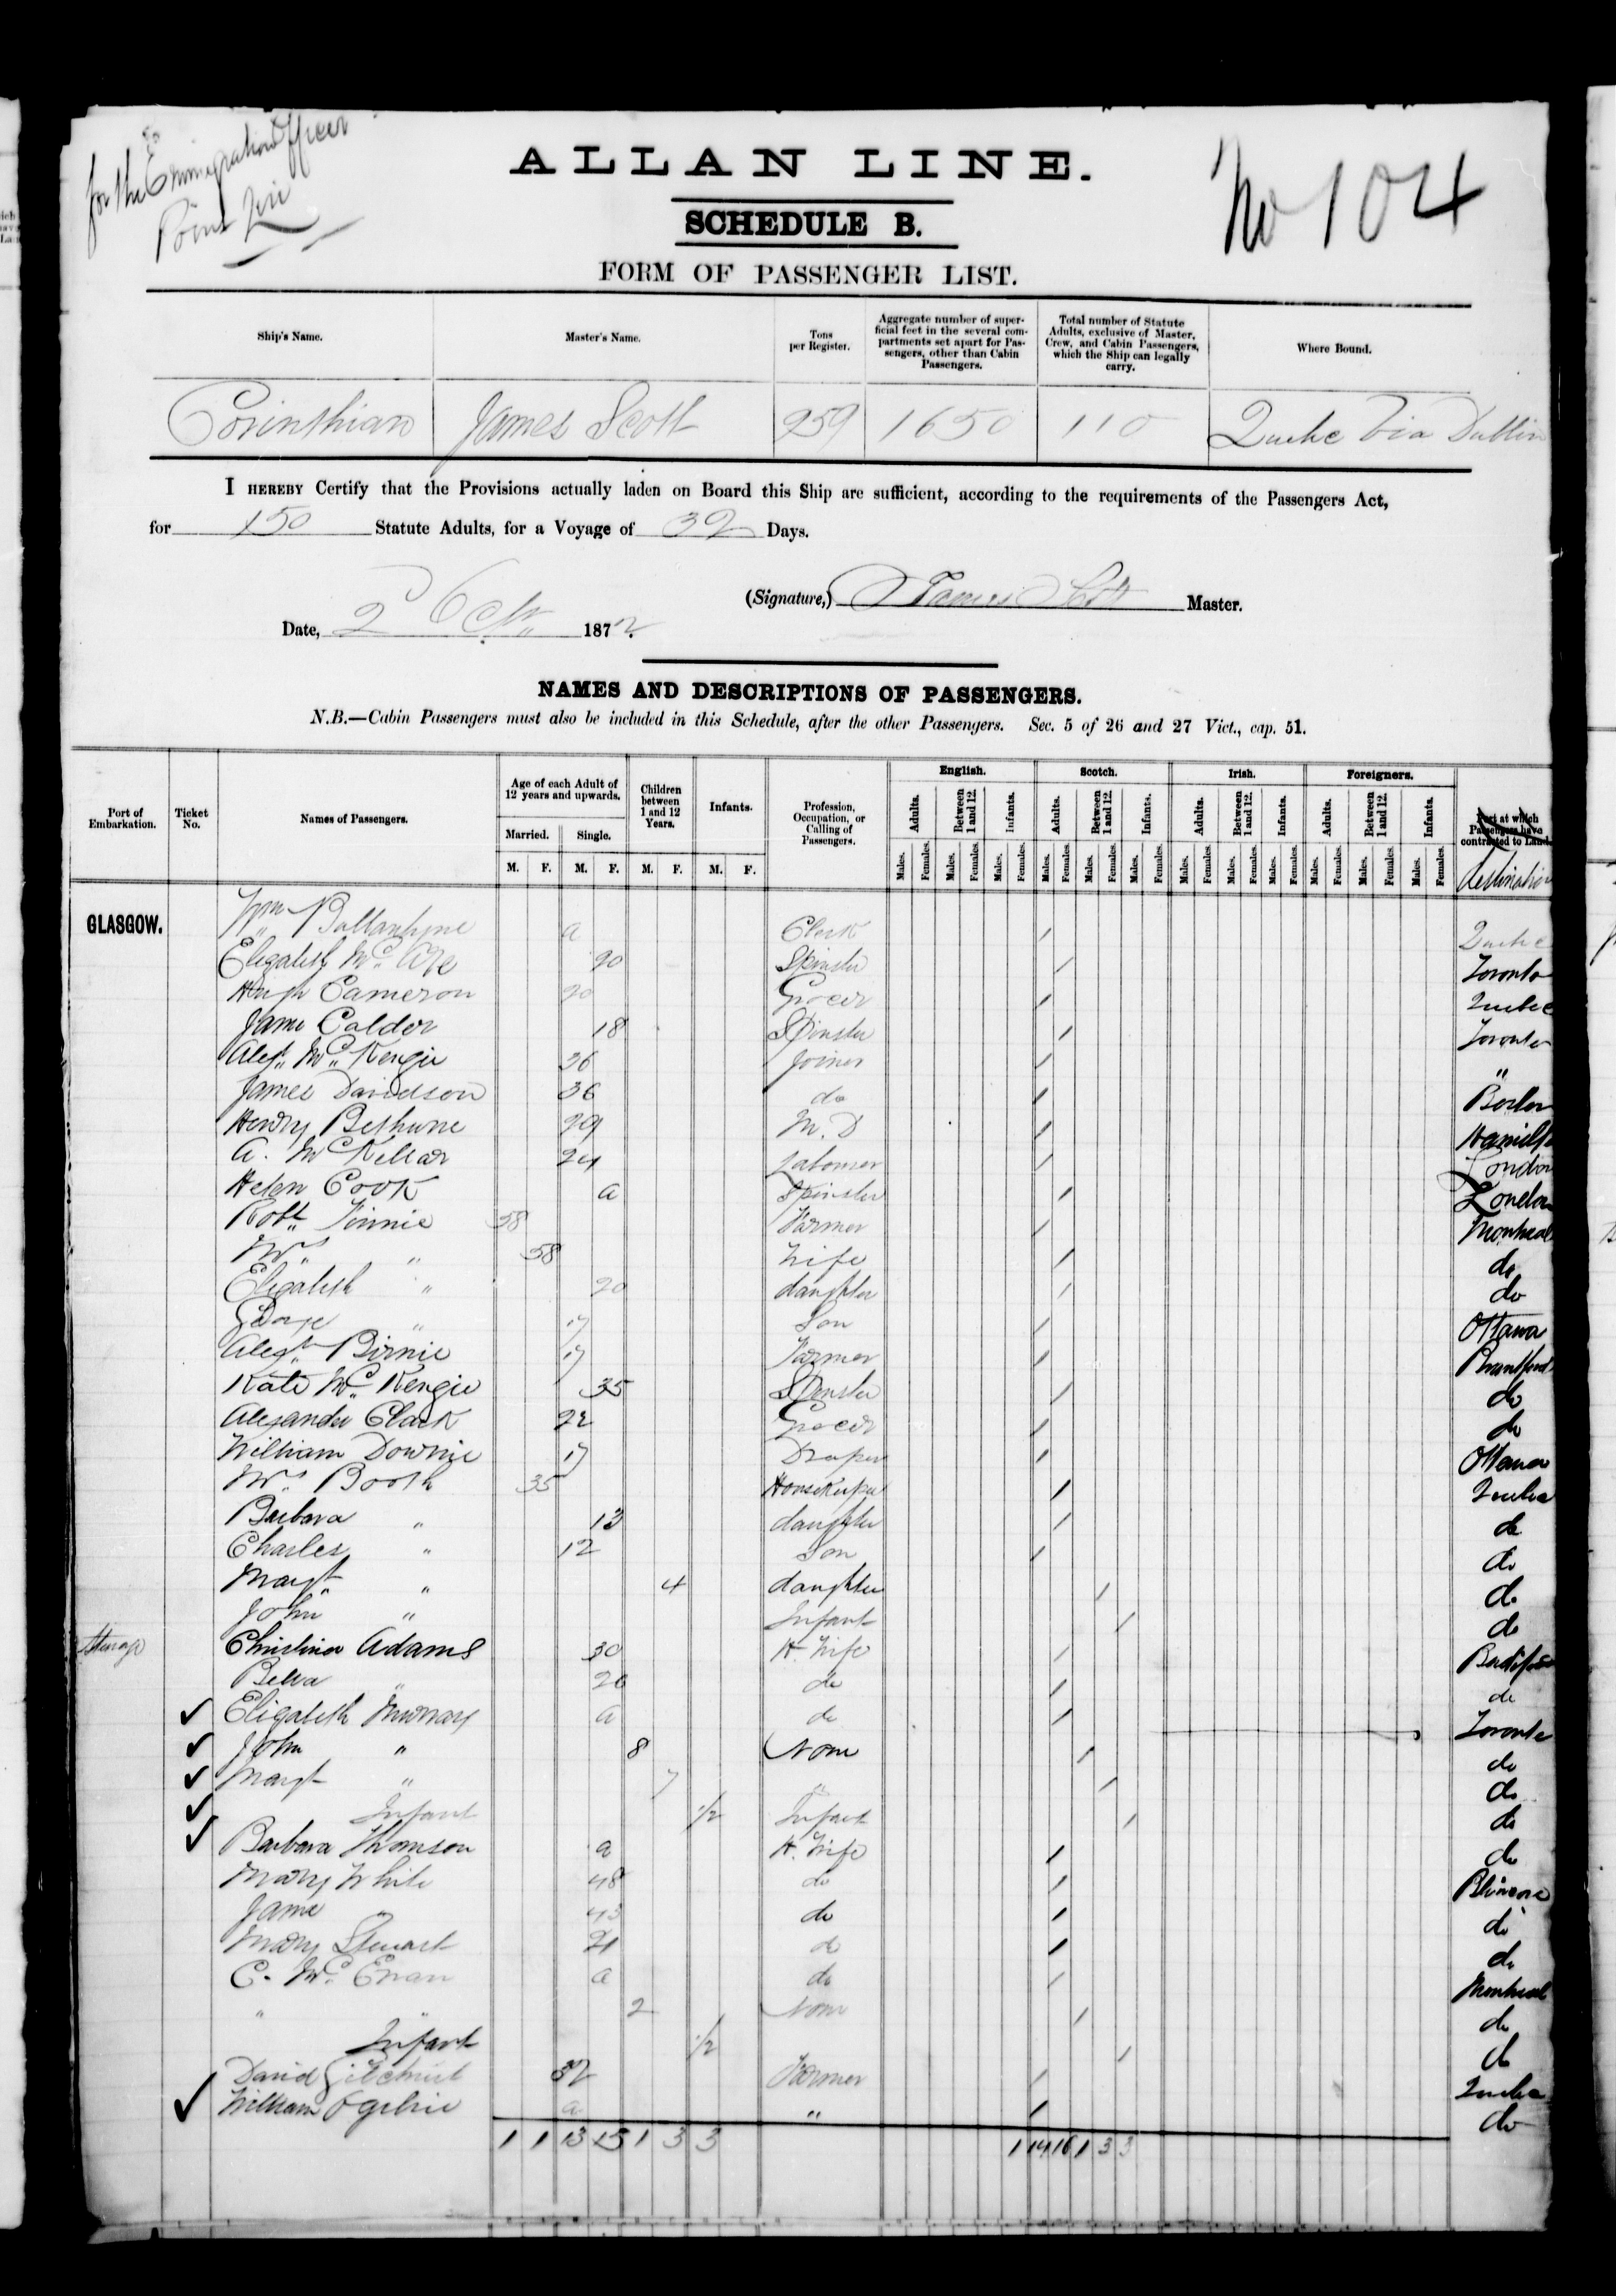 for the Emigration Officer
No 104
ALLAN LINE.
SCHEDULE B.
FORM OF PASSENGER LIST.
Ship's Name. Master's Name. Tons per Register. Aggregate number of superficial feet in the several compartments set apart for Passengers, other than Cabin Passengers. Total number of Statute Adults, exclusive of Master, Crew, and Cabin Passengers, which the Ship can legally carry. Where Bound.
Corinthian James Scott 259 1650 110 Quebec via Dublin
I HEREBY Certify that the Provisions actually laden on Board this Ship are sufficient, according to the requirements of the Passengers Act,
for 150 Statute Adults, for a Voyage of 32 Days.
(Signature,) James Scott Master.
Date, 2 Oct 1872.
NAMES AND DESCRIPTIONS OF PASSENGERS.
N.B.—Cabin Passengers must also be included in this Schedule, after the other Passengers. Sec. 5 of 26 and 27 Vict., cap. 51.
Port of Embarkation. Ticket No. Names of Passengers. Age of each Adult of 12 years and upwards. Children between 1 and 12 Years. Infants. Profession, Occupation, or Calling of Passengers. English. Scotch. Irish. Foreigners. Port at which Passengers have contracted to Land.
Married. Single. Adults. Between 1 and 12. Infants. Adults. Between 1 and 12. Infants. Adults. Between 1 and 12. Infants. Adults. Between 1 and 12. Infants.
M. F. M. F. M. F. M. F. Males. Females. Males. Females. Males. Females. Males. Females. Males. Females. Males. Females. Males. Females. Males. Females. Males. Females. Males. Females. Males. Females. Males. Females. destination
GLASGOW. Wm Ballantyne a Clerk Quebec
Elizabeth 20 Spinster Toronto
Hugh Cameron 20 Grocer Quebec
Jane Calder 18 Spinster Toronto
Alex. McKenzie 36 Joiner "
James Davidson 36 do
Henry Bethune 29 M.D Hamilton
A. McKellar 24 Labourer London
Helen Cook a Spinster London
Robt. Finnie 58 Farmer Montreal
Mrs " 58 Wife do
Elizabeth " 20 daughter do
George " 17 Son Ottawa
Alexr. Birnie 17 Farmer Brantford
Kate McKenzie 35 Spinster do
Alexander Clark 22 Grocer do
William Downie 17 Draper Ottawa
Mrs. Booth 35 Housekeeper Quebec
Barbara " 13 daughter do
Charles " 12 Son do
Margt " 4 daughter do
John " Infant do
Steerage Christina Adams 30 H. Wife
Bella " 20 do do
Elizabeth Murray a do Toronto
John " 8 None do
Margt " 7 " do
Infant 1/2 Infant do
Barbara Thomson a H. Wife do
Mary White 48 do
Jane " 43 do do
Mary Stewart 21 do do
C. McEwan a do Montreal
" " 2 None do
Infant 1/2 do
David Gilchrist 32 Farmer Quebec
William Ogilvie a " do
1 1 13 15 1 3 3 1 14 16 1 3 3